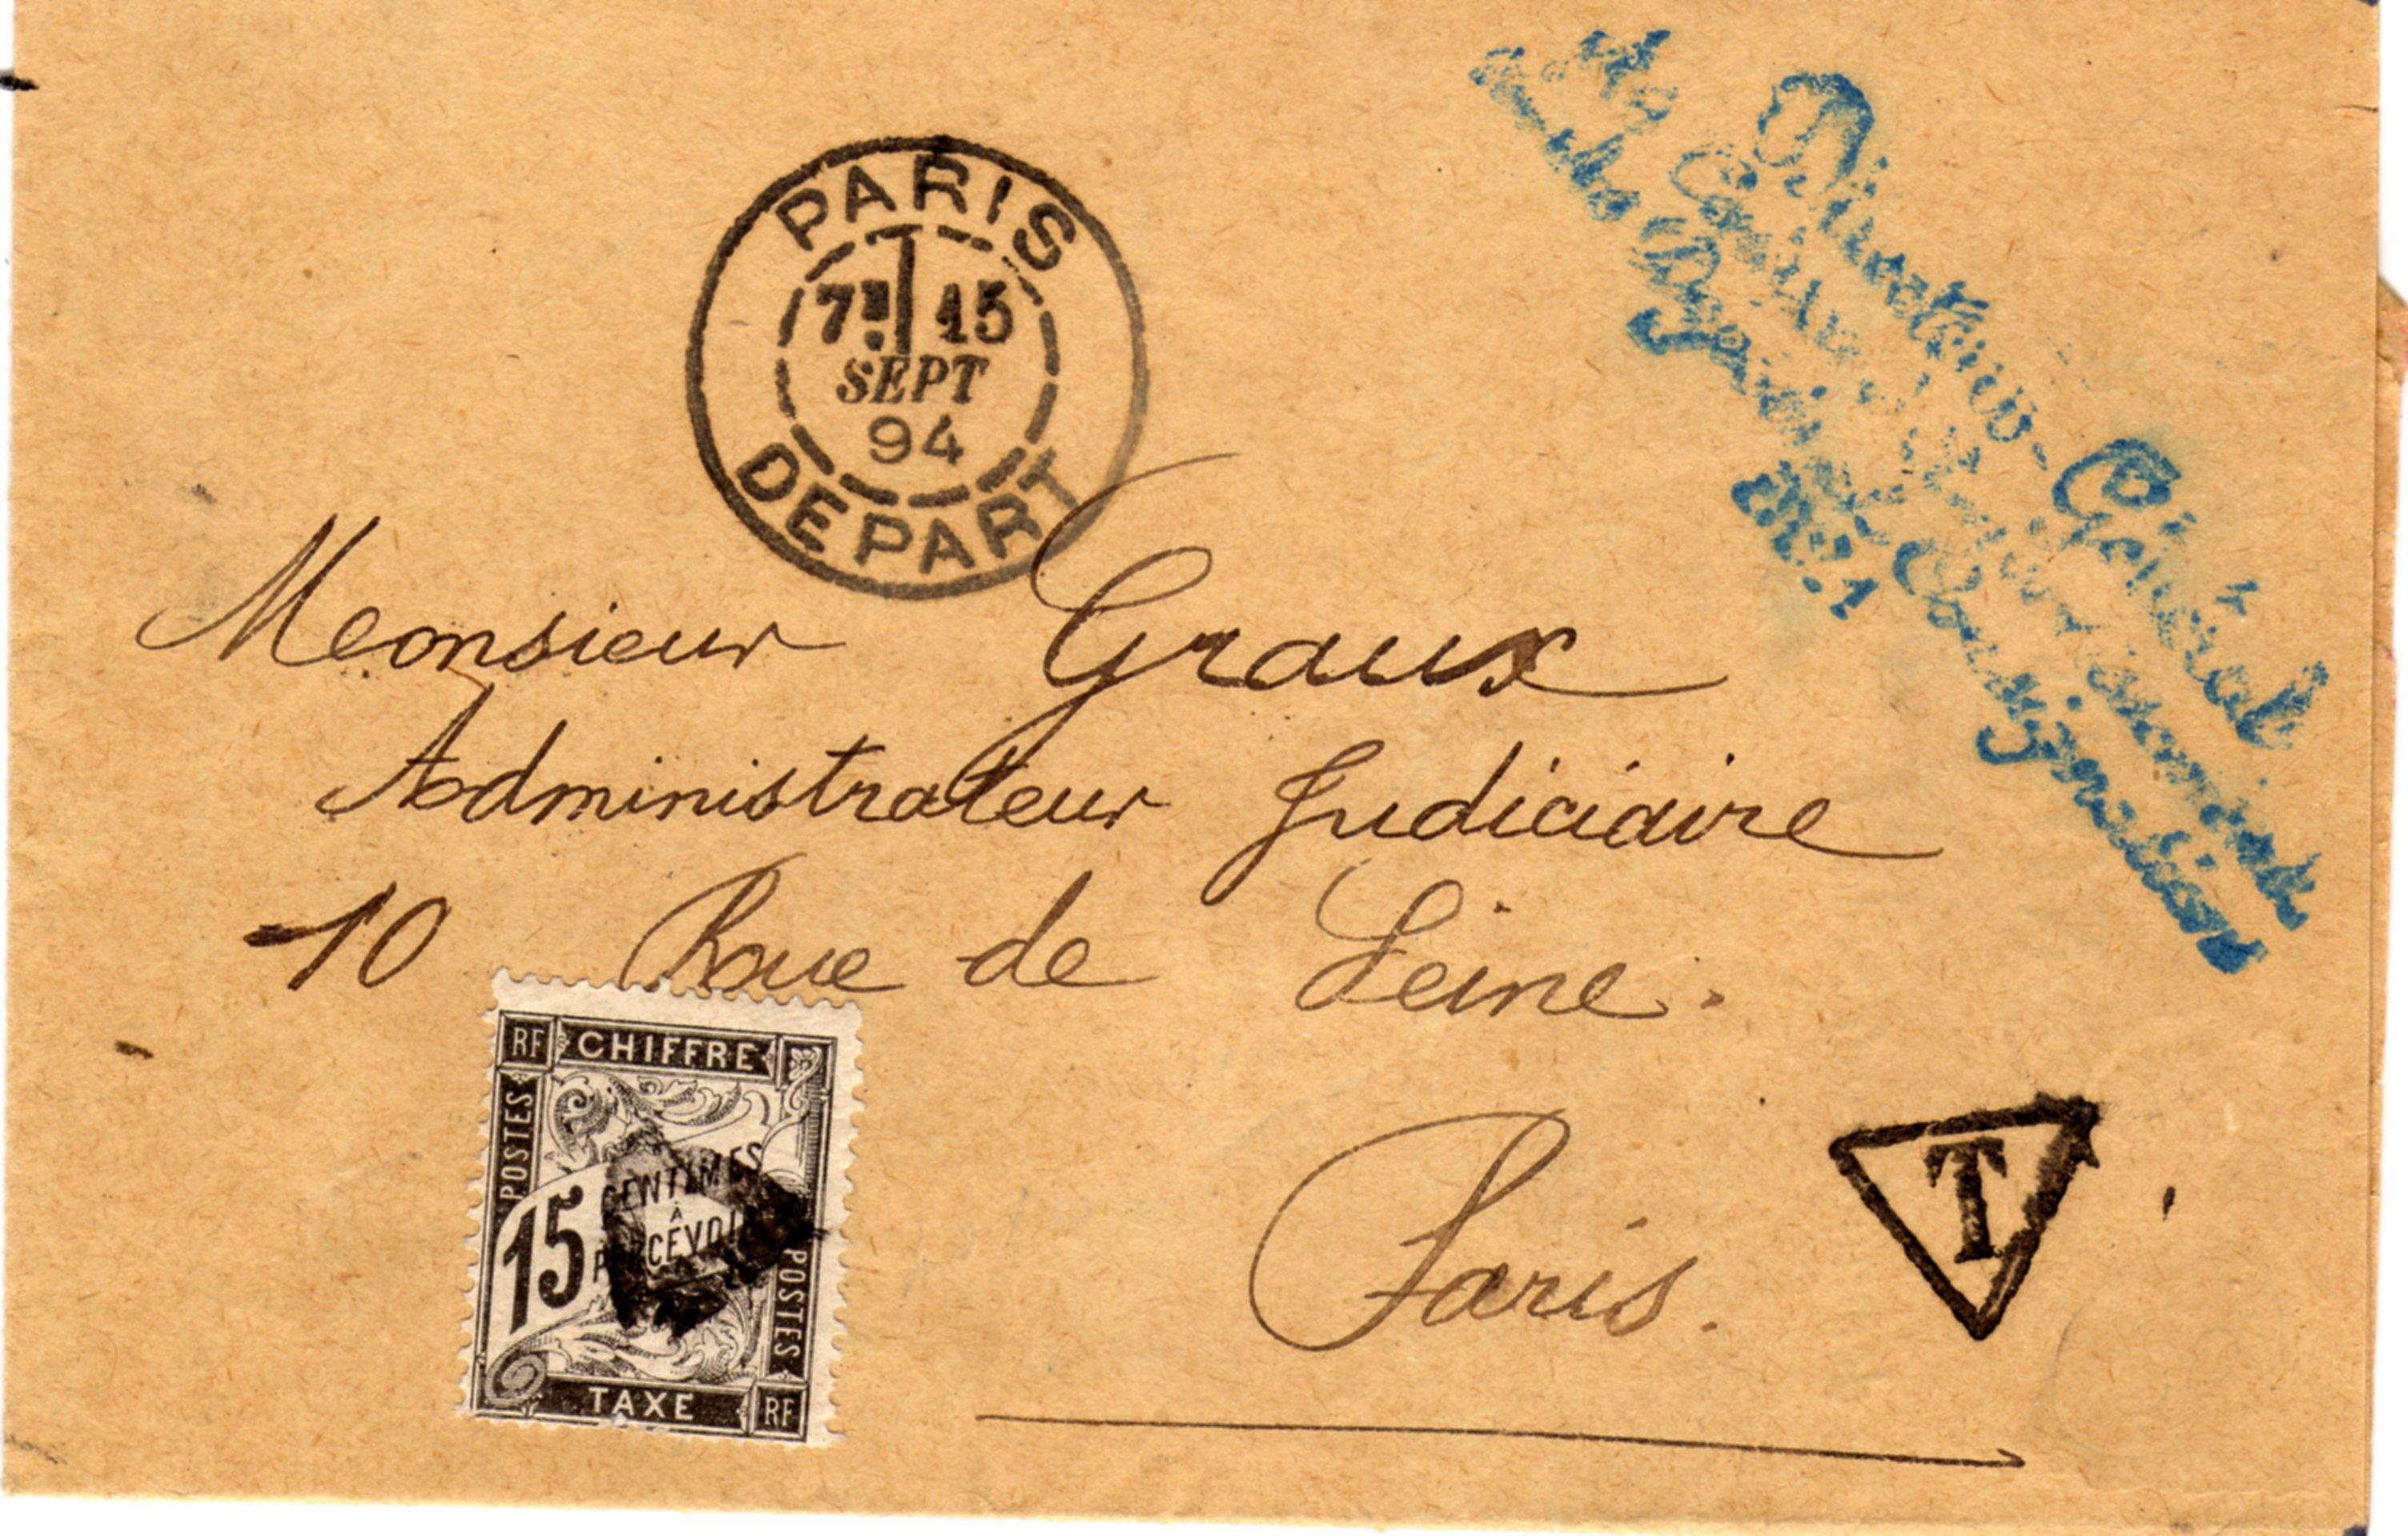 PARIS
7E 15
SEPT
94
DEPART
Directeur-Général
des Dépôts et Consignations
Monsieur Graux
Administrateur Judiciaire
10 Rue de Seine.
Paris.
T
RF CHIFFRE
POSTES
15 CENTIMES
À
PERCEVOIR
POSTES
TAXE RF